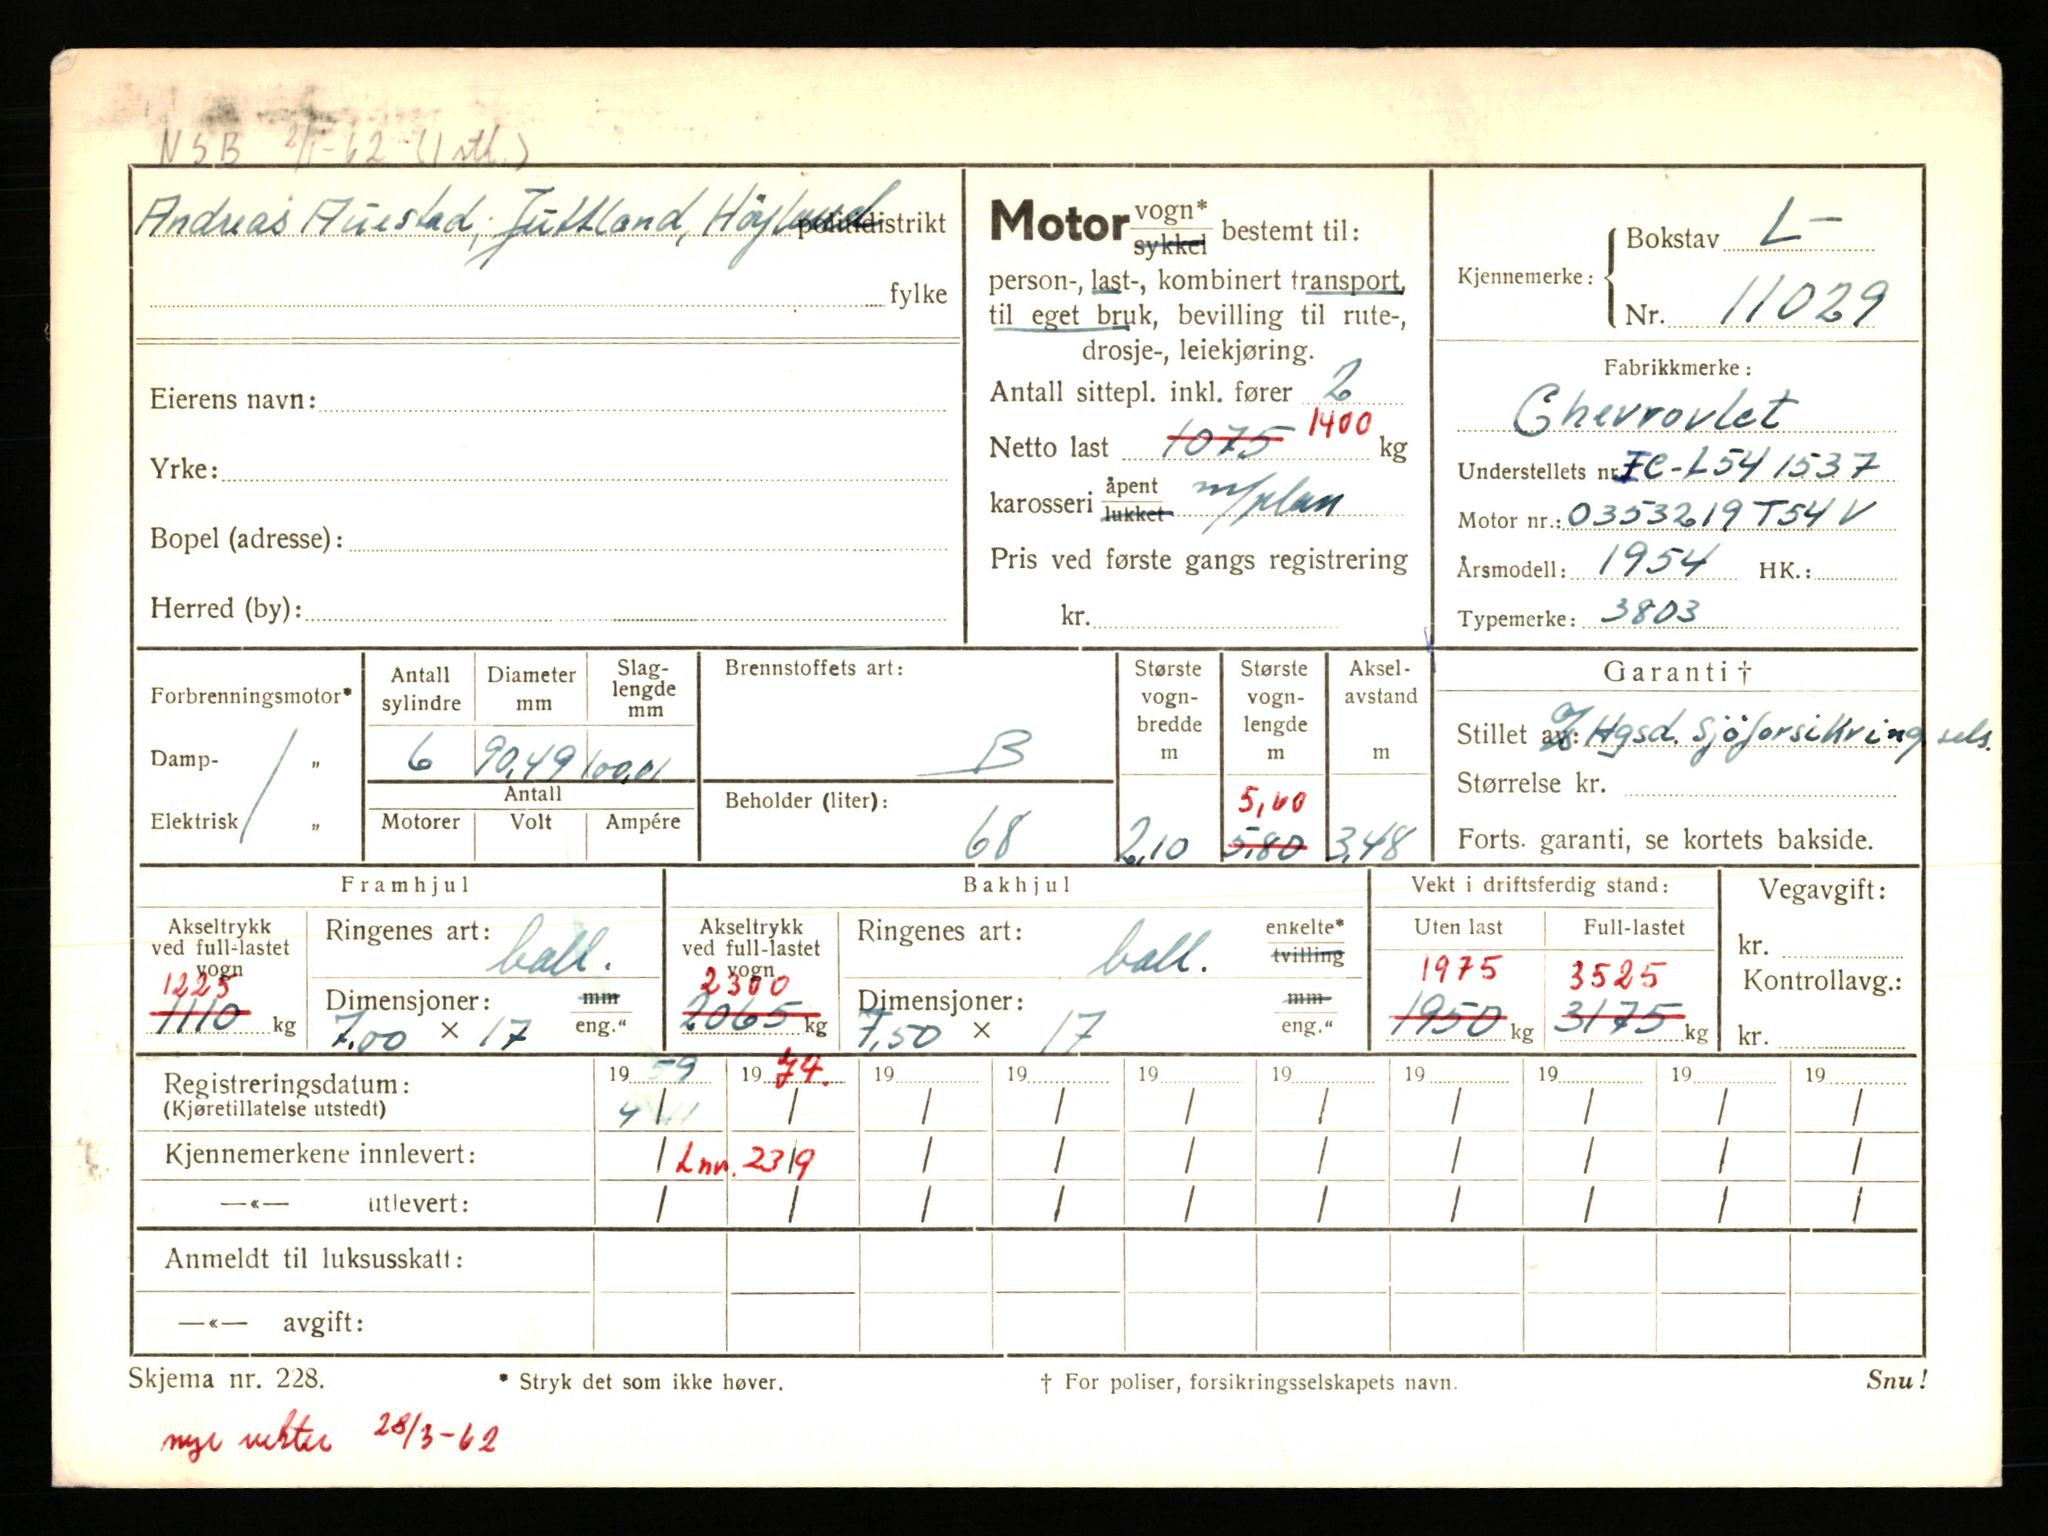 NSB 2/1-62 (1 stk.)
Andreas Auestad, Juttland, Höyland politidistrikt
fylke
Eierens navn:
Yrke:
Bopel (adresse):
Herred (by):
Motor vogn* sykkel bestemt til:
person-, last-, kombinert transport,
til eget bruk, bevilling til rute-,
drosje-, leiekjøring.
Antall sittepl. inkl. fører 2
Netto last 1075 1400 kg
karosseri åpent lukket m/plan
Pris ved første gangs registrering
kr.
Kjennemerke: Bokstav L-
Nr. 11029
Fabrikkmerke:
Chevrovlet
Understellets nr. FC-L541537
Motor nr.: 0353219T54V
Årsmodell: 1954 HK.:
Typemerke: 3803
Forbrenningsmotor*
Damp- „
Elektrisk „
Antall sylindre
Diameter mm
Slag-lengde mm
6 90,49 100,01
Antall
Motorer Volt Ampére
Brennstoffets art:
B
Beholder (liter):
68
Største vogn-bredde m
2,10
Største vogn-lengde m
5,60
5,80
Aksel-avstand m
3,48
Garanti †
Stillet av: Hgsd. Sjöforsikring sels.
Størrelse kr.
Forts. garanti, se kortets bakside.
Framhjul
Akseltrykk
ved full-lastet
vogn
1225
1110 kg
Ringenes art: ball.
Dimensjoner: mm
7,00 × 17 eng."
Bakhjul
Akseltrykk
ved full-lastet
vogn
2300
2065 kg
Ringenes art: ball. enkelte* tvilling
Dimensjoner: mm
7,50 × 17 eng."
Vekt i driftsferdig stand:
Uten last Full-lastet
1975 3525
1950 kg 3175 kg
Vegavgift:
kr.
Kontrollavg.:
kr.
Registreringsdatum: 19 59 19 74. 19 19 19 19 19 19 19 19
(Kjøretillatelse utstedt) 4/11 / / / / / / / / /
Kjennemerkene innlevert: / Lnr. 23/9 / / / / / / / /
—«— utlevert: / / / / / / / / / /
Anmeldt til luksusskatt:
—«— avgift:
Skjema nr. 228. * Stryk det som ikke høver. † For poliser, forsikringsselskapets navn. Snu!
nye vekter 28/3-62